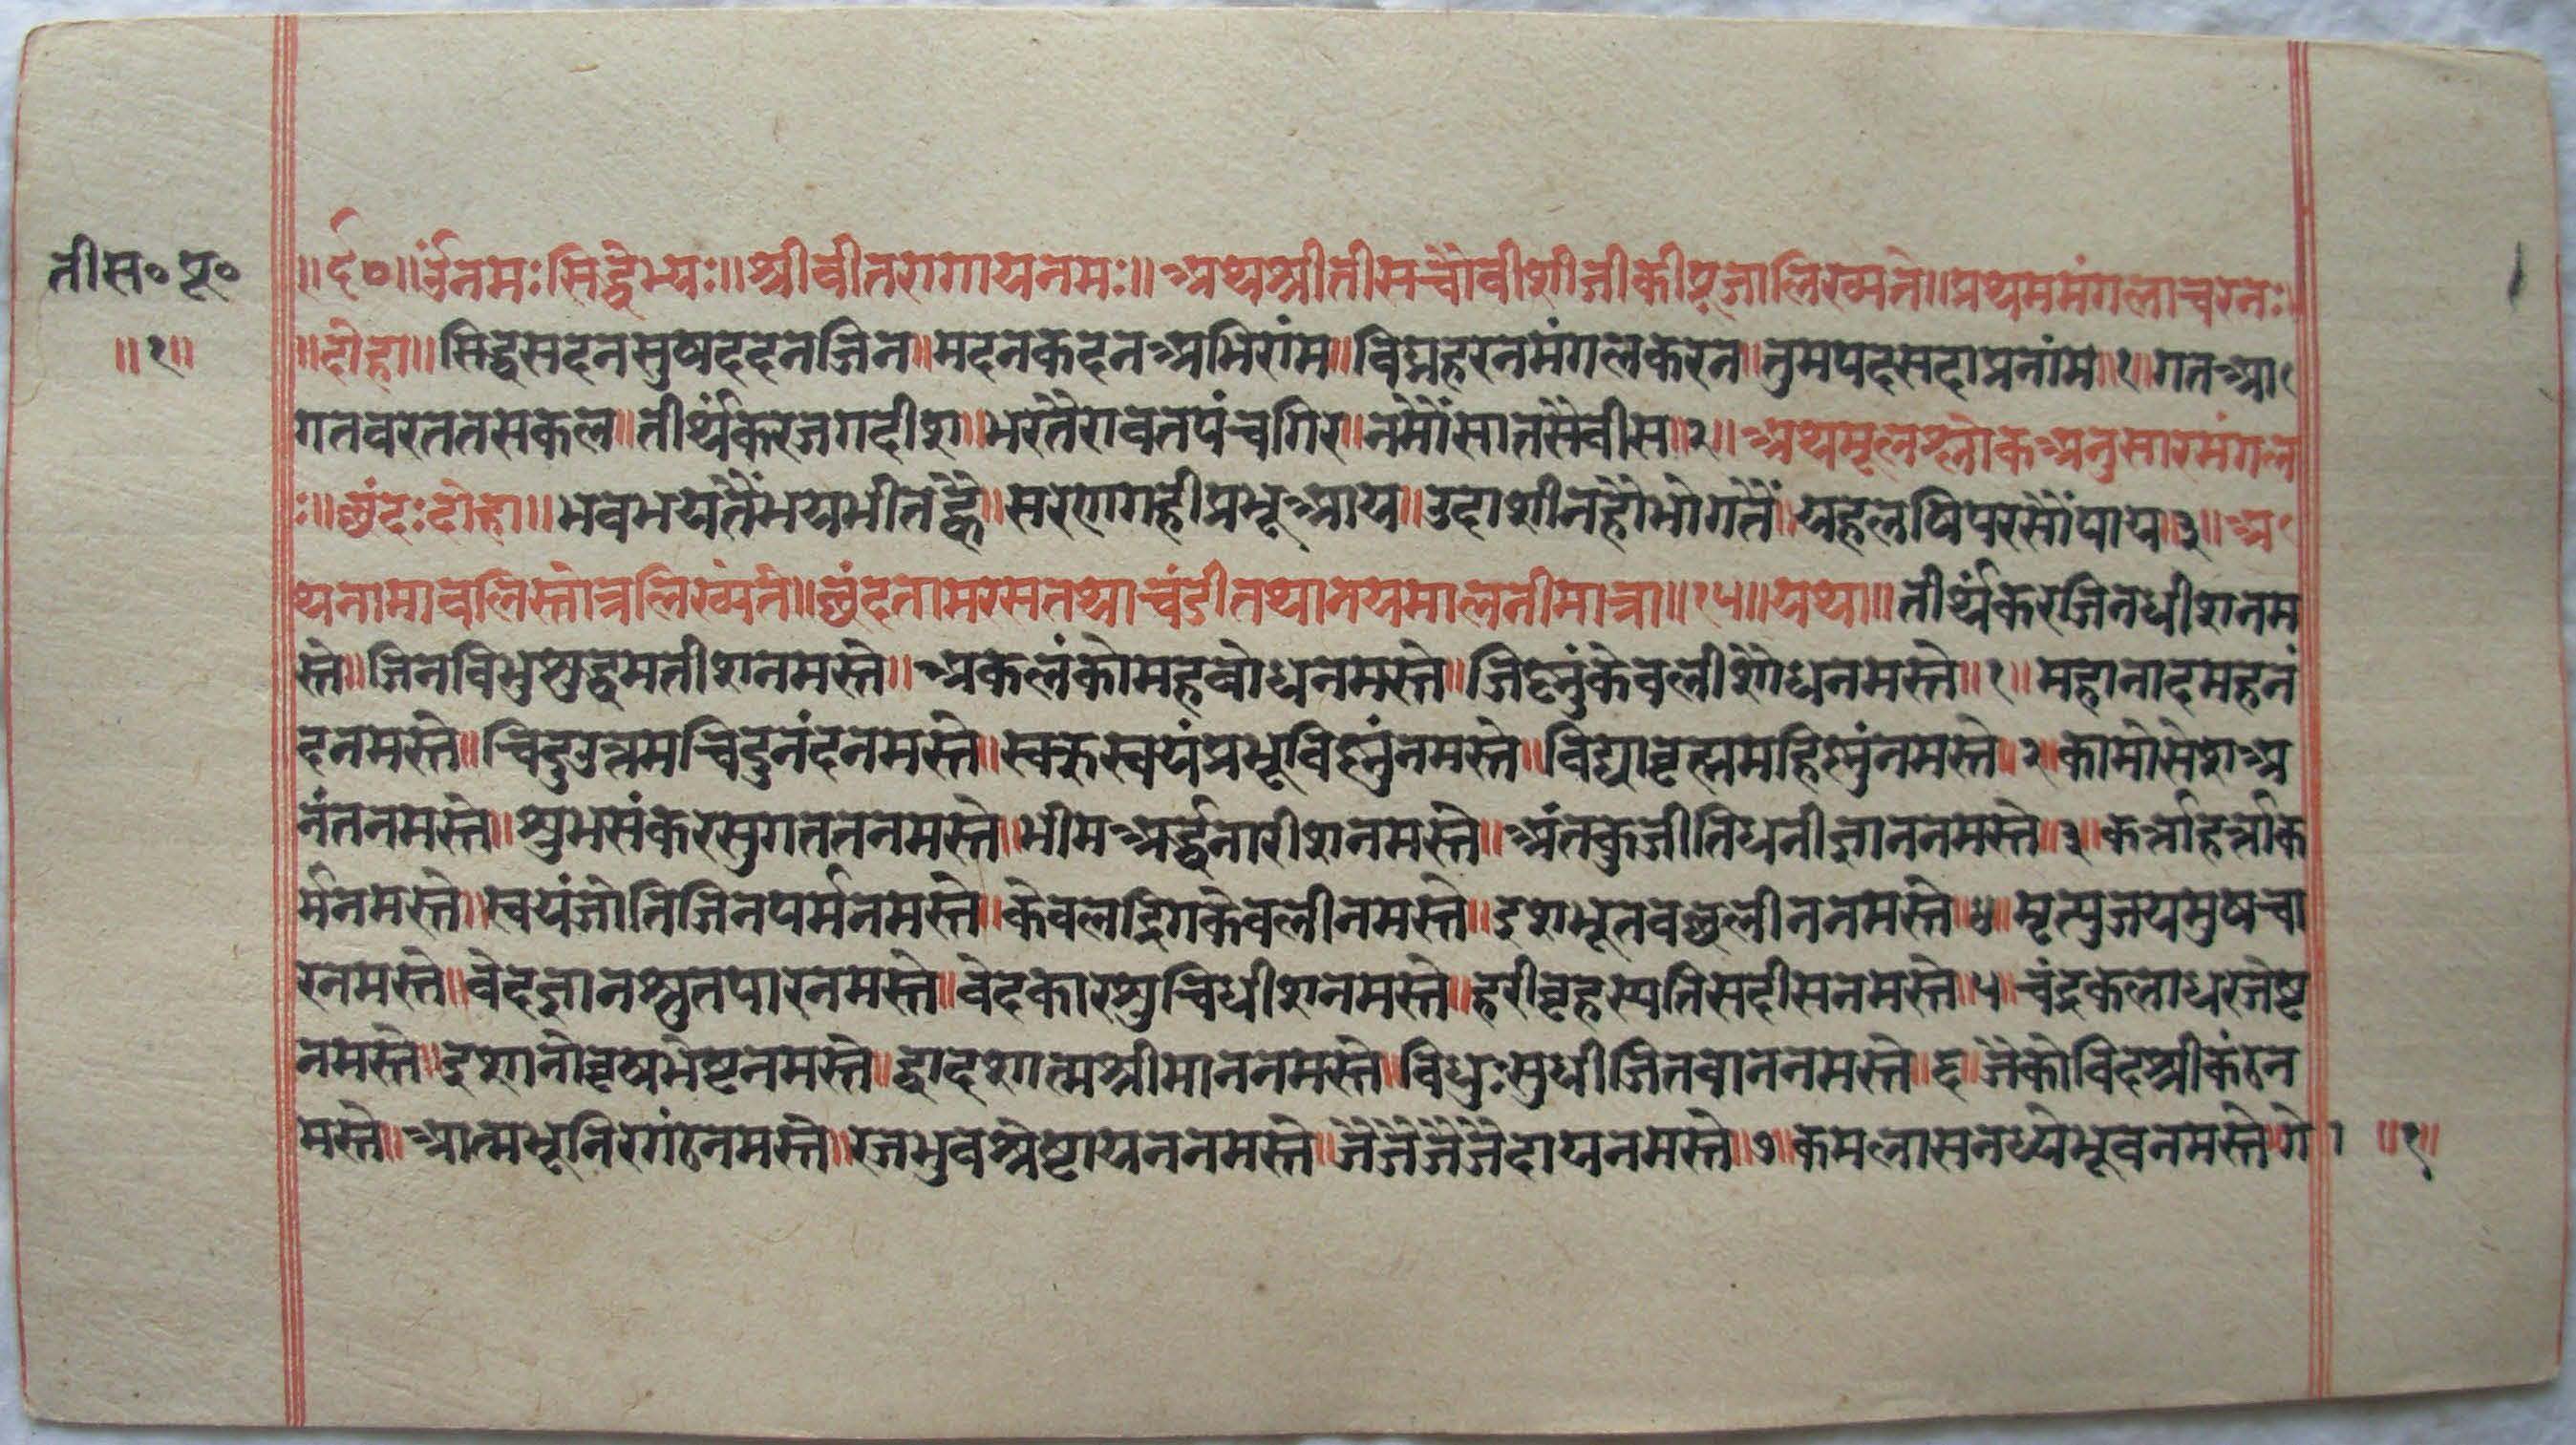 तीस॰ पू॰
॥१॥
॥र्द०॥ र्उनमःसिद्धेभ्यः॥ श्रीवीतरागायनमः॥ अथश्रीतीसचौवीशीजीकीपूजालिख्यते॥ प्रथममंगलाचरनः॥
॥दोहा॥ सिद्धसदनसुषददनजिन॥ मदनकदनअभिरांम॥ विघ्नहरनमंगलकरन॥ तुमपदसदाप्रनांम॥१॥ गतआ
गतवरततसकल॥ तीर्थंकरजगदीश॥ भरतैरावतपंचगिर॥ नमौंसातसैवीस॥२॥ अथमूलश्लोकअनुसारमंगल
ः॥ छंदःदोहा॥ भवभयतैंभयभीतह्वै॥ सरणगहीप्रभूआय॥ उदाशीनहौभोगतैं॥ यहलषिपरसौंपाय॥३॥ अ
थनामावलिस्तोत्रलिख्यंते॥ छंदतामरसतथाचंडीतथानयमालनीमात्रा॥१५॥ यथा॥ तीर्थंकरजिनधीशनम
स्ते॥ जिनविभुशुद्धमतीशनमस्ते॥ अकलंकोमहवोधनमस्ते॥ जिष्नुंकेवलीशोधनमस्ते॥१॥ महानादमहनं
दनमस्ते॥ चिदुउत्तमचिदुनंदनमस्ते॥ स्वरुस्वयंप्रभूविह्नुंनमस्ते॥ विद्यावृत्समहिह्नुंनमस्ते॥२॥ कामोसेशअ
नंतनमस्ते॥ शुभसंकरसुगततनमस्ते॥ भीमअर्द्धनारीशनमस्ते॥ अंतकुजीतिघनीज्ञाननमस्ते॥३॥ कर्त्ताहर्त्ताक
र्मनमस्ते॥ स्वयंजोतिजिनपर्मनमस्ते॥ केवलद्रिगकेवलीनमस्ते॥ इशभूतवछलीननमस्ते॥४॥ मृत्युजयमुषचा
रनमस्ते॥ वेदज्ञानश्रुतपारनमस्ते॥ वेदकारशुचिधीशनमस्ते॥ हरीवृहस्पतिसदीसनमस्ते॥५॥ चंद्रकलाधरजेष्ट
नमस्ते॥ इशानोवृषभेष्टनमस्ते॥ द्वादशात्मश्रीमाननमस्ते॥ विधुःसुधीजितवाननमस्ते॥६॥ जैकोविदश्रीकंठन
मस्ते॥ आत्मभूनिरगंठनमस्ते॥ रजभुवश्रेष्टायननमस्ते॥ जैजैजैजैदायनमस्ते॥७॥ कमलासनध्येभूवनमस्ते॥ गे। ॥१॥